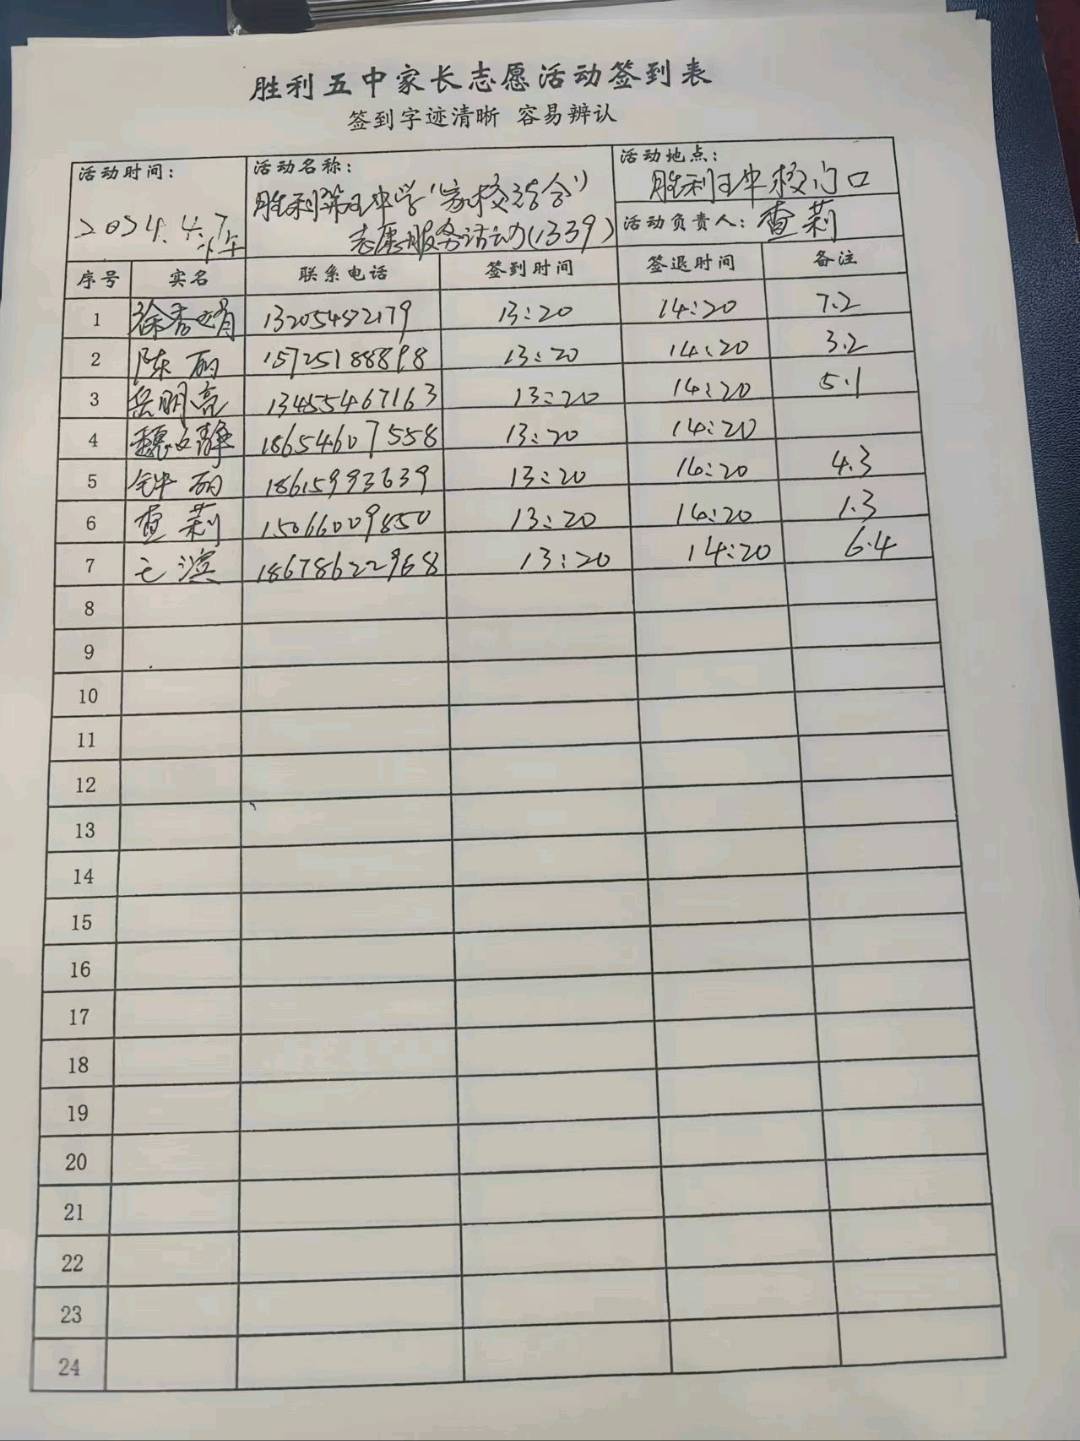 胜利五中家长志愿活动签到表
签到字迹清晰 容易辨认
活动时间:
2024.4.7
活动名称:
胜利第五中学“家校结合”
志愿服务活动(1339)
活动地点:
胜利五中校门口
活动负责人: 查莉
序号 实名 联系电话 签到时间 签退时间 备注
1 徐秀娟 13:20 14:20 7.2
2 陈丽 15725188898 13:20 14:20 3.2
3 岳明亮 13455467163 13:20 14:20 5.1
4 魏文静 18654607558 13:20 14:20
5 钟丽 18615993639 13:20 14:20 4.3
6 查莉 15066009850 13:20 14:20 1.3
7 滨 18678622968 13:20 14:20 6.4
8
9
10
11
12
13
14
15
16
17
18
19
20
21
22
23
24